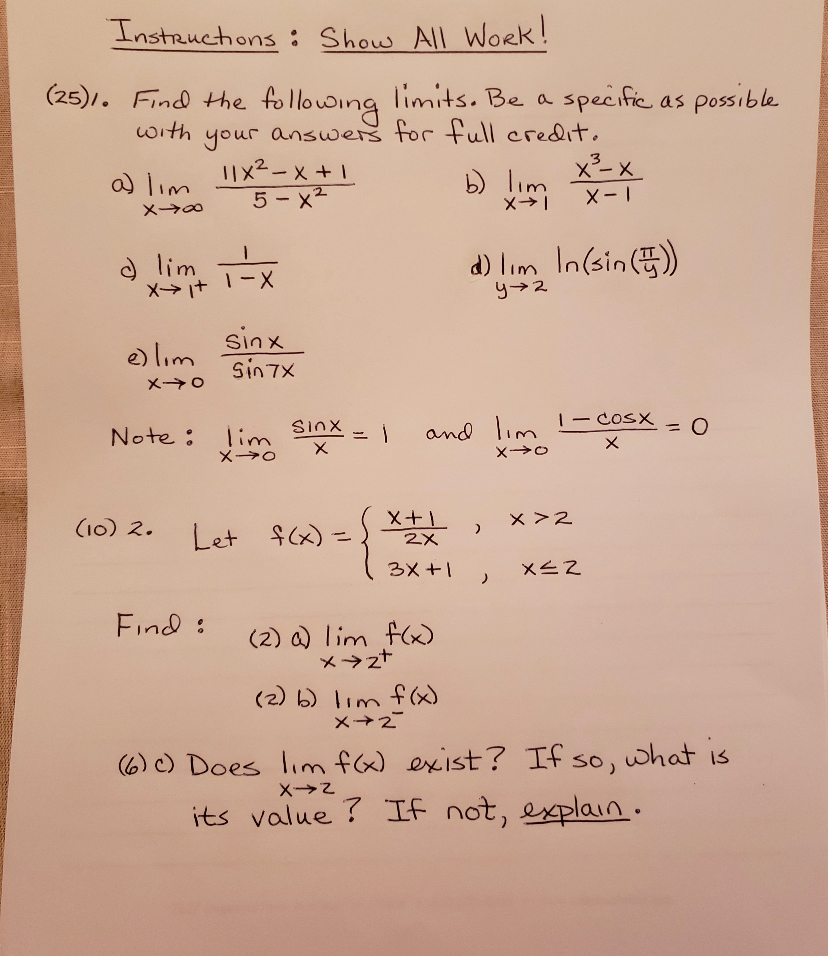 Instructions : Show All Work!
(25)1. Find the following limits. Be a specific as possible
with your answers for full credit.
a) lim x→∞ (11x² - x + 1)/(5 - x²)
b) lim x→1 (x³ - x)/(x - 1)
c) lim x→1⁺ 1/(1 - x)
d) lim y→2 ln(sin(π/y))
e) lim x→0 sin x/sin 7x
Note : lim x→0 sin x/x = 1 and lim x→0 (1 - cos x)/x = 0
(10) 2. Let f(x) = { (x+1)/(2x) , x > 2
3x + 1 , x ≤ 2
Find :
(2) a) lim x→2⁺ f(x)
(2) b) lim x→2⁻ f(x)
(6) c) Does lim x→2 f(x) exist? If so, what is
its value? If not, explain.